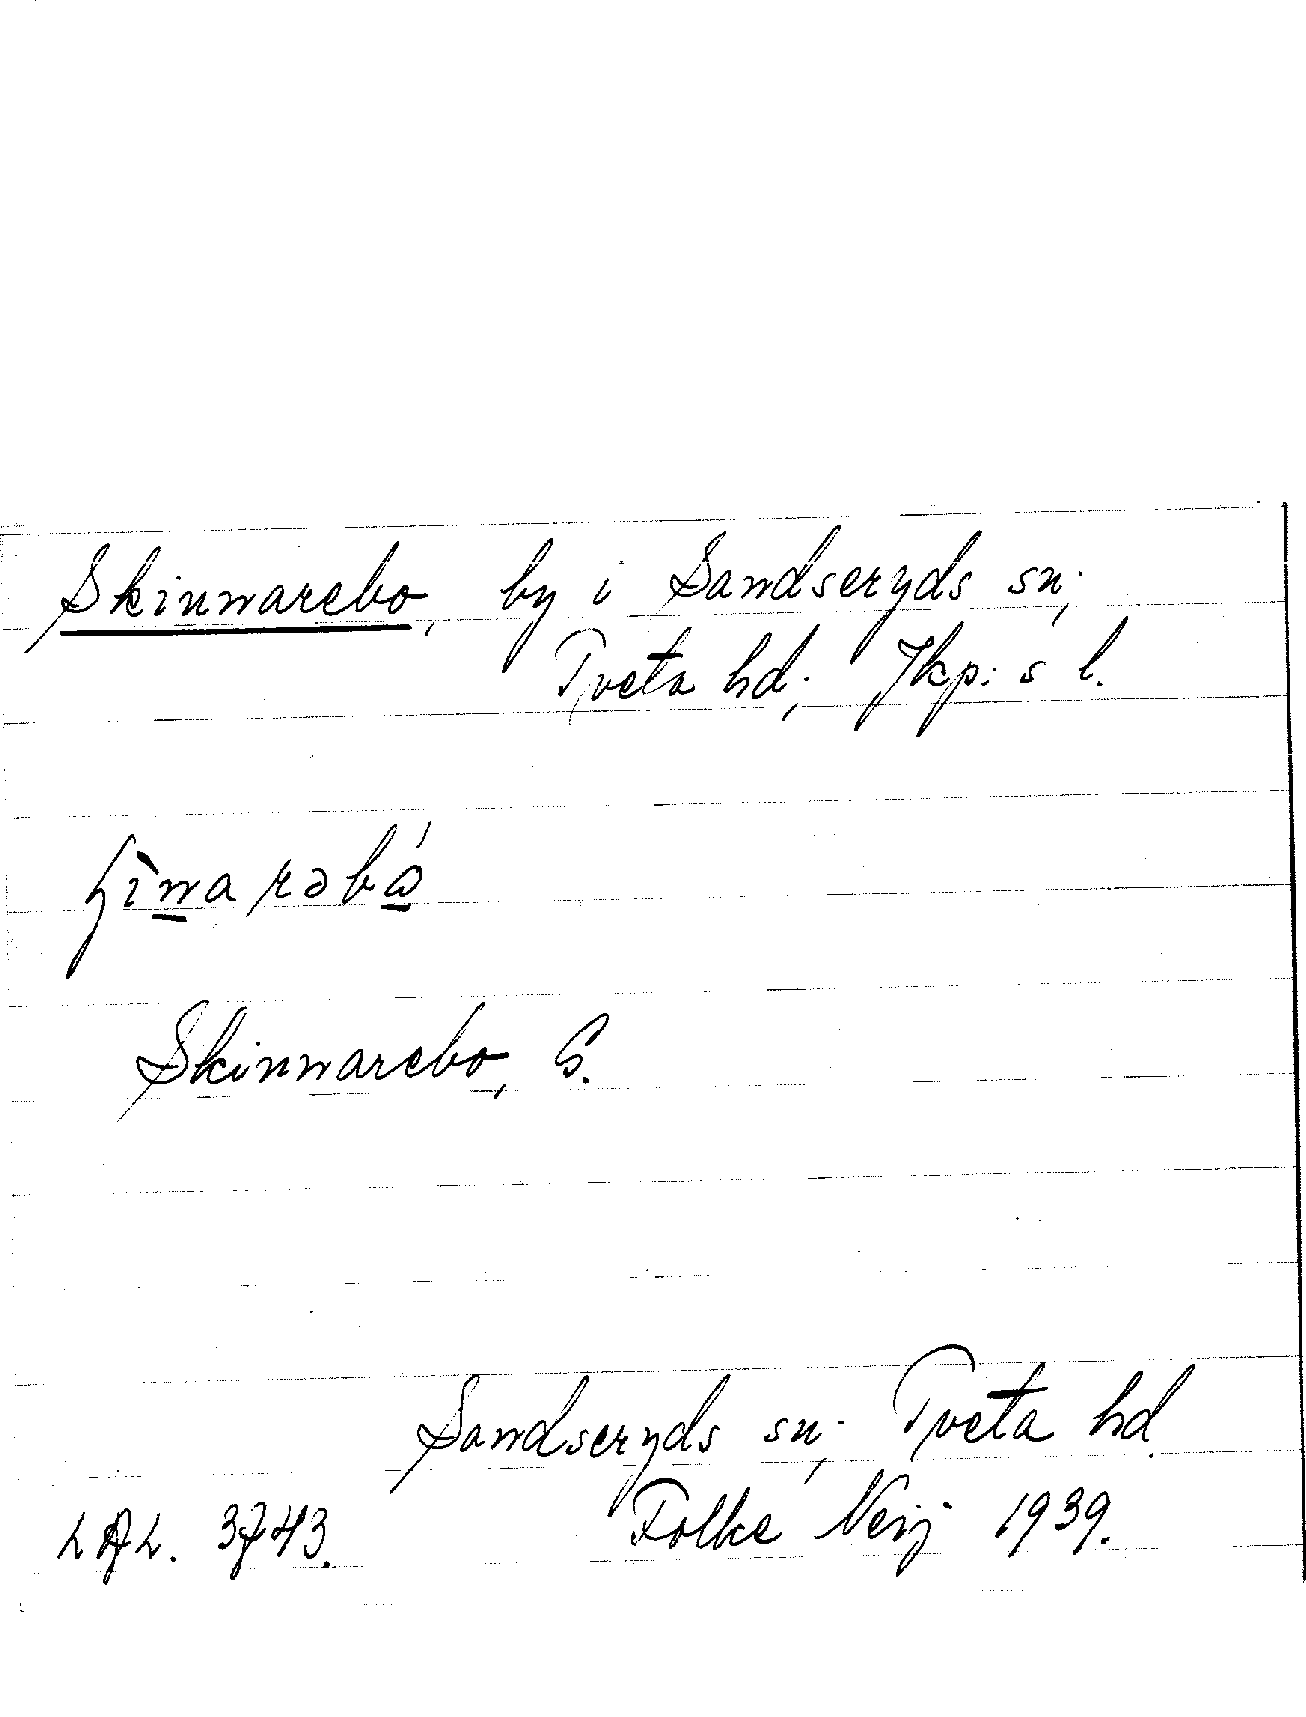 Skinnarebo, by i Sandseryds sn;
Tveta hd; Jkp:s l.
Skinnarebo, G.
Sandseryds sn; Tveta hd.
Folke Neij 1939.
3743.